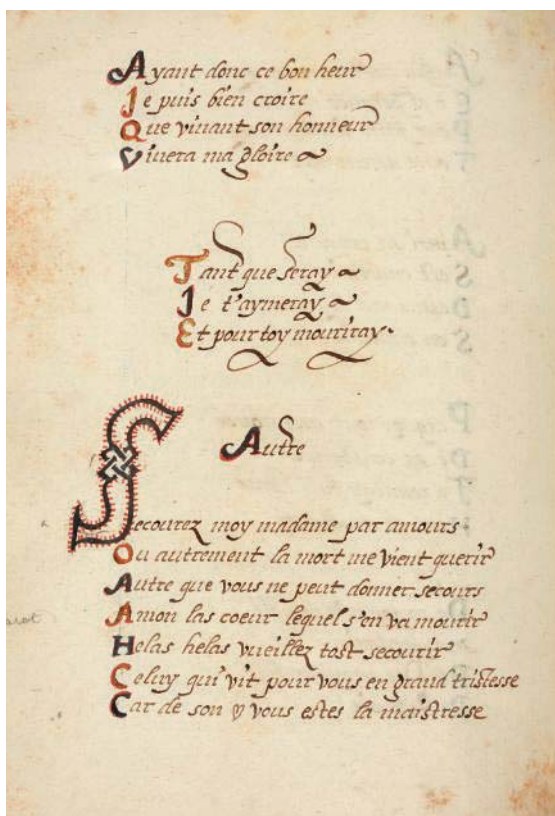 Ayant donc ce bon heur
Je puis bien croire
Que viuant son honneur
Viuera ma gloire
Tant que seray
Je t'aymeray
Et pour toy mouriray.
Autre
Secourez moy madame par amours
Ou autrement la mort me vient querir
Autre que vous ne peut donner secours
Amon las coeur lequel s'en va mourir
Helas helas vueillez tost secourir
Celuy qui vit pour vous en grand tristesse
Car de son vous estes la maistresse